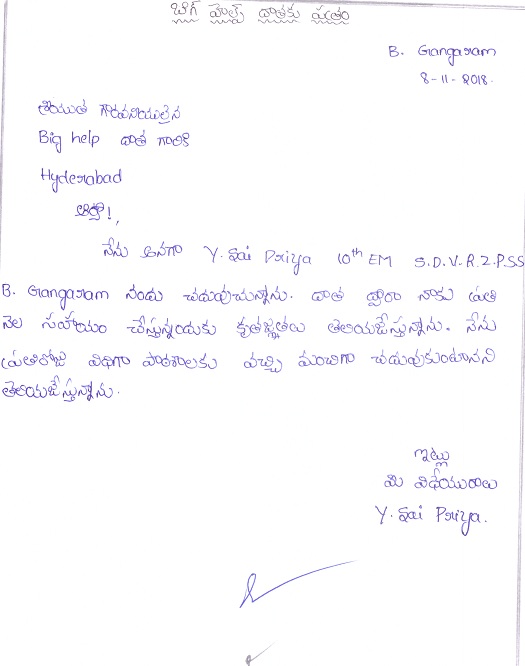 బిగ్ హెల్ప్ దాతకు పత్రం
B. Gangaram
8-11-2018.
శ్రీయుత గౌరవనీయులైన
Big help దాత గారికి
Hyderabad
ఆర్యా!,
నేను అనగా Y. Sai Priya 10th EM S.D.V.R.Z.P.SS
B. Gangaram నందు చదువుచున్నాను. దాత ద్వారా నాకు ప్రతి
నెల సహాయం చేస్తున్నందుకు కృతజ్ఞతలు తెలియజేస్తున్నాను. నేను
ప్రతిరోజు విధిగా పాఠశాలకు వచ్చి మంచిగా చదువుకుంటానని
తెలియజేస్తున్నాను.
ఇట్లు
మీ విధేయురాలు
Y. Sai Priya.